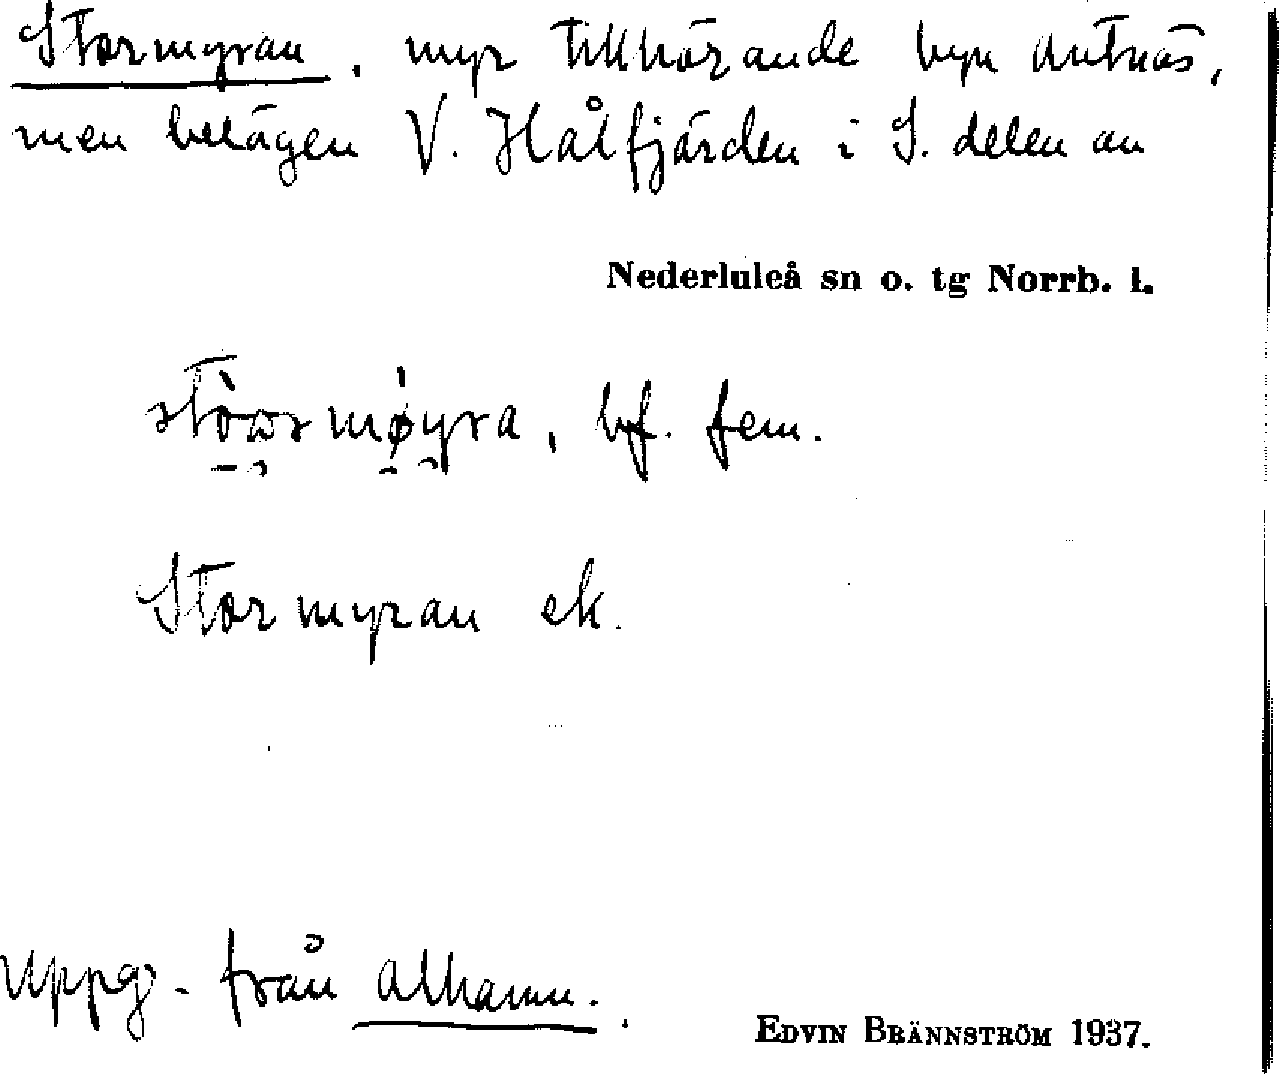 Stormyran, myr tillhörande byn Antnäs,
men belägen V. Hålfjärden i S. delen av
Nederluleå sn o. tg Norrb. l.
bf. fem.
Stormyran ek.
Uppg. från Alhamn.
EDVIN BRÄNNSTRÖM 1937.